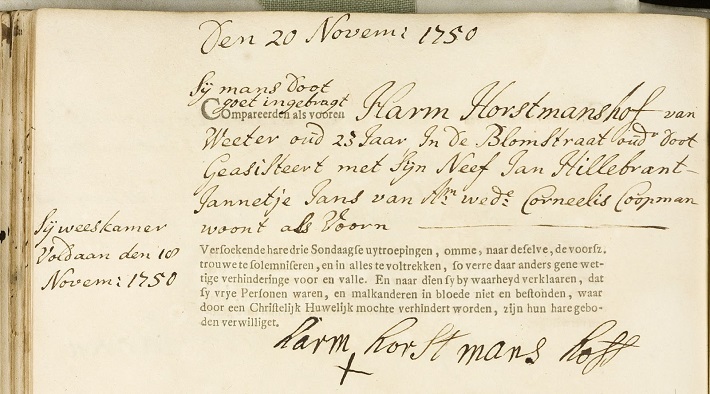 Den 20 Novem: 1750
Sÿ mans doot
goet ingebragt
COmpareerden als vooren Harm Horstmanshof van
Weeter oud 23 Jaar In de Blomstraat oud.s doot
Geasisteert met Sÿn Neef Jan Hillebrant
Jannetje Jans van A:m wed:e Corneelis Coopman
woont als Voorn
Sÿ weeskamer
Voldaan den 18
Novem: 1750
Versoekende hare drie Sondaagse uytroepingen, omme, naar deselve, de voorsz.
trouwe te solemniseren, en in alles te voltrekken, so verre daar anders gene wet-
tige verhinderinge voor en valle. En naar dien sy by waarheyd verklaaren, dat
sy vrye Personen waren, en malkanderen in bloede niet en bestonden, waar
door een Christelijk Huwelijk mochte verhindert worden, zijn hun hare gebo-
den verwilliget.
harm horst mans hoff